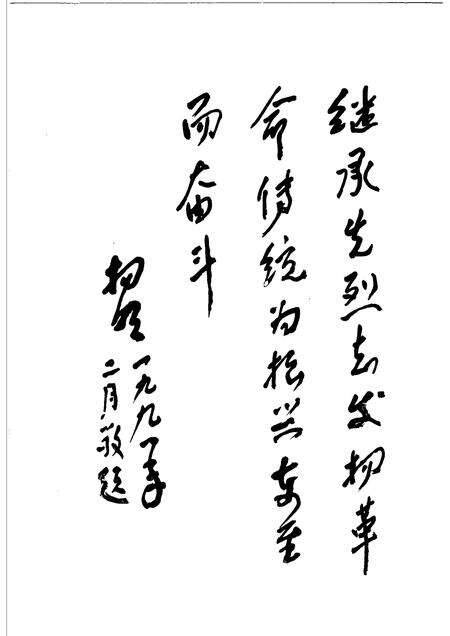 继承先烈志发扬革
命传统为振兴东至
而奋斗
一九九一年
二月敬题